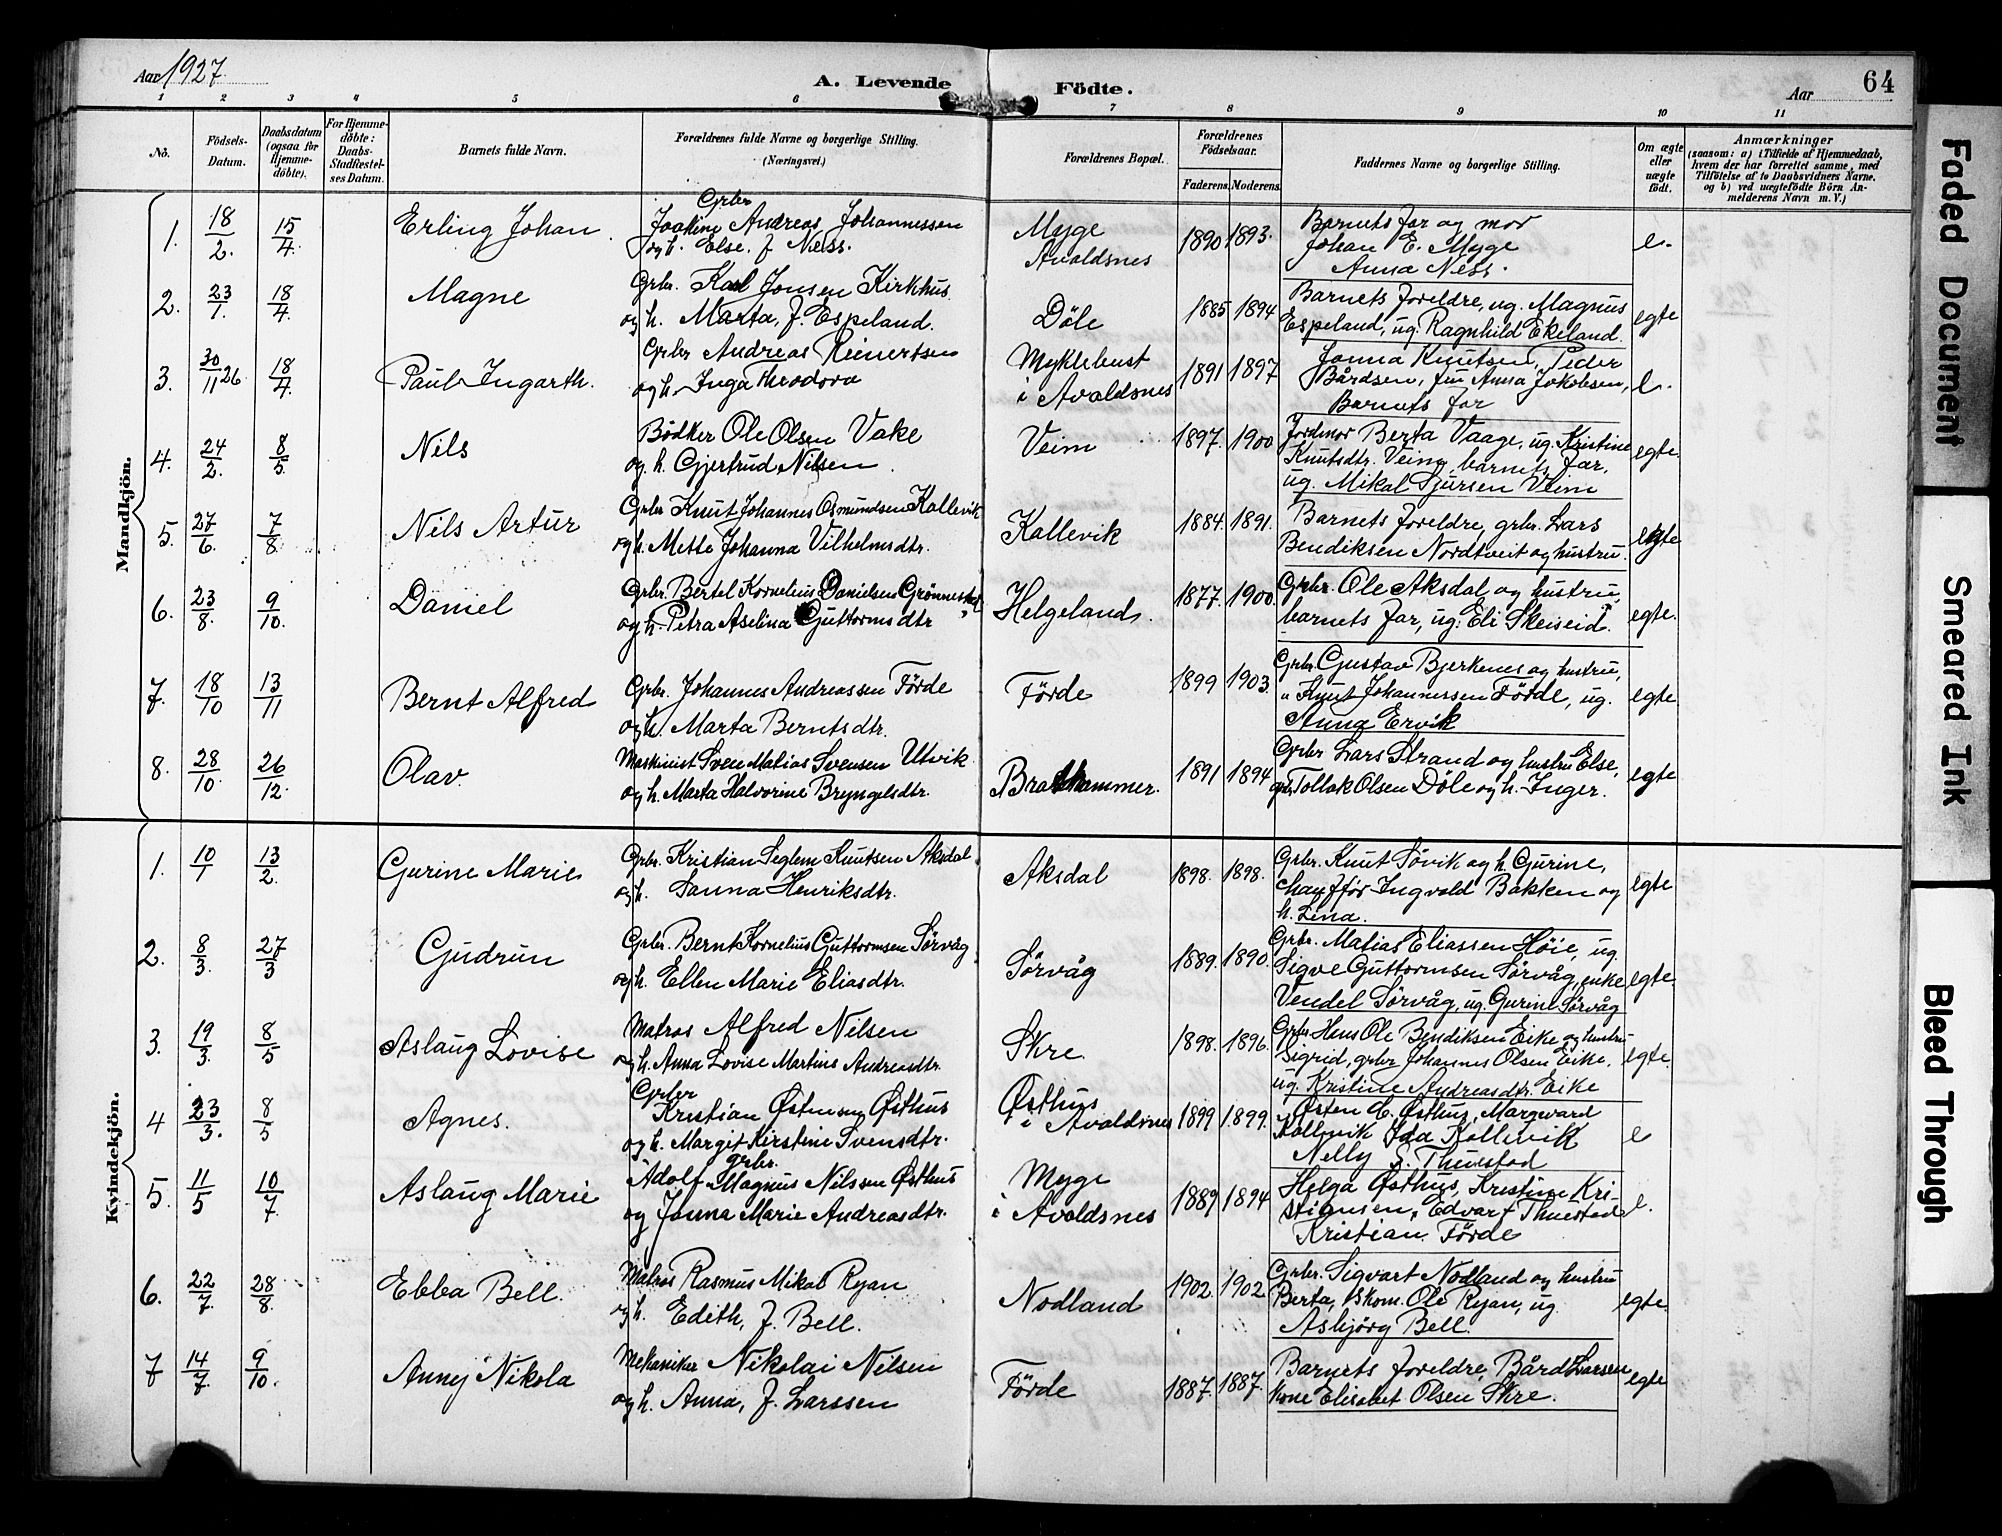 Aar 1927.
A. Levende Födte.
Aar
64
1 2 3 4 5 6 7 8 9 10 11
No.
Födsels-Datum.
Daabsdatum (ogsaa for Hjemme-döbte).
For Hjemme-döbte: Daabs-Stadfæstel-ses Datum.
Barnets fulde Navn.
Forældrenes fulde Navne og borgerlige Stilling. (Næringsvei.)
Forældrenes Bopæl.
Forældrenes Födselsaar.
Faderens. Moderens.
Faddernes Navne og borgerlige Stilling.
Om ægte eller uægte födt.
Anmærkninger
(saasom: a) i Tilfælde af Hjemmedaab, hvem der har forrettet samme, med Tilföielse af to Daabsvidners Navne, og b) ved uægtefödte Börn An-melderens Navn m. V.)
Mandkjön.
1. 18/2. 15/4. Erling Johan. Grbr Joakim Andreas Johannessen
og h. Else, f. Ness. Myge Avaldsnes 1890 1893. Barnets far og mor
Johan E. Myge
Anna Ness. e.
2. 23/1. 18/4. Magne Grbr. Karl Jonsen Kirkhus
og h. Marta, f. Espeland. Döle 1885 1894 Barnets foreldre, ug. Magnus
Espeland, ug. Ragnhild Ekeland. egte
3. 30/11 26. 18/4. Paul Ingarth. Grbr Andreas Reinertsen
og h. Inga Theodora Myklebust i Avaldsnes 1891 1897 Janna Knutsen, Peder
Bårdsen, fru Anna Jakobsen,
Barnets far e.
4. 24/2. 8/5. Nils Bødker Ole Olsen Vake
og h. Gjertrud Nilsen. Veim 1897. 1900 Jordmor Berta Vaage, ug. Kristine
Knutsdtr. Veim, barnets far,
ug. Mikal Sjursen Veim egte.
5. 27/6. 7/8. Nils Artur Grbr Knut Johannes Osmundsen Kallevik
og h. Mette Johanna Vilhelmsdtr. Kallevik 1884. 1891. Barnets foreldre, grbr. Lars
Bendiksen Nordtveit og hustru. egte
6. 23/8. 9/10. Daniel Grbr. Bertel Kornelius Danielsen Grönnestad
og h. Petra Aselina Guttormsdtr Helgeland. 1877. 1900. Grbr. Ole Aksdal og hustru,
barnets far, ug. Eli Skeiseid. egte.
7. 18/10 13/11 Bernt Alfred Grbr. Johannes Andreassen Förde
og h. Marta Berntsdtr. Förde 1899 1903. Grbr. Gustav Bjerkenes og hustru,
" Knut Johannessen Förde, ug.
Anna Ervik egte.
8. 28/10. 26/12. Olav. Maskinist Sven Matias Svensen Utvik
og h. Marta Halvorine Bryngelsdtr. Brathammer. 1891 1894 Grbr Lars Strand og hustru Else,
grbr. Tollak Olsen Döle og h. Inger. egte
Kvindekjön.
1. 10/1 13/2. Gurine Marie Grbr. Kristian Seglem Knutsen Aksdal
og h. Sanna Henriksdtr. Aksdal 1898. 1898. Grbr. Knut Sövik og h. Gurine,
chaufför Ingvald Bakken og
h. Lina. egte
2. 8/3. 27/3 Gudrun Grbr. Bernt Kornelius Guttormsen Sörvåg
og h. Ellen Marie Eliasdtr. Sörvåg 1889. 1890. Grbr. Matias Eliassen Höie, ug.
Sigve Guttormsen Sörvåg, enke
Vendel Sörvåg, ug. Gurine Sörvåg egte.
3. 19/3. 8/5 Aslaug Lovise Matros Alfred Nilsen
og h. Anna Lovise Martine Andreasdtr. Skre. 1898. 1896. Grbr. Hans Ole Bendiksen Eike og hustru
Sigrid, grbr Johannes Olsen Eike,
ug. Kristine Andreasdtr. Eike egte.
4 23/3. 8/5 Agnes. Grbr Kristian Østensen Østhus
og h. Margit Kirstine Svensdtr. Østhus i Avaldsnes 1899 1899. Østen C. Østhus, Margvard
Kallevik Ida Kallevik
Nelly S. Thuestad e
5. 11/5 10/7. Aslaug Marie grbr. Adolf Magnus Nilssen Østhus
og Janna Marie Andreasdtr. Myge i Avaldsnes 1889 1894 Helga Østhus, Kristine Kri-
stiansen, Edvart Thuestad
Kristian Förde e.
6. 22/7. 28/8. Ebba Bell. Matros Rasmus Mikal Ryan
og h. Edith, f. Bell. Nodland 1902. 1902 Grbr. Sigvart Nodland og hustru
Berta, Ole Ryan, ug.
Asbjörg Bell. egte
7 14/7. 9/10. Anny Nikola Mekaniker Nikolai Nilsen
og h. Anna, f. Larssen Förde 1887. 1887. Barnets foreldre, Bård Larsen
kone Elisabet Olsen Skre. egte
Faded Document
Smeared Ink
Bleed Through